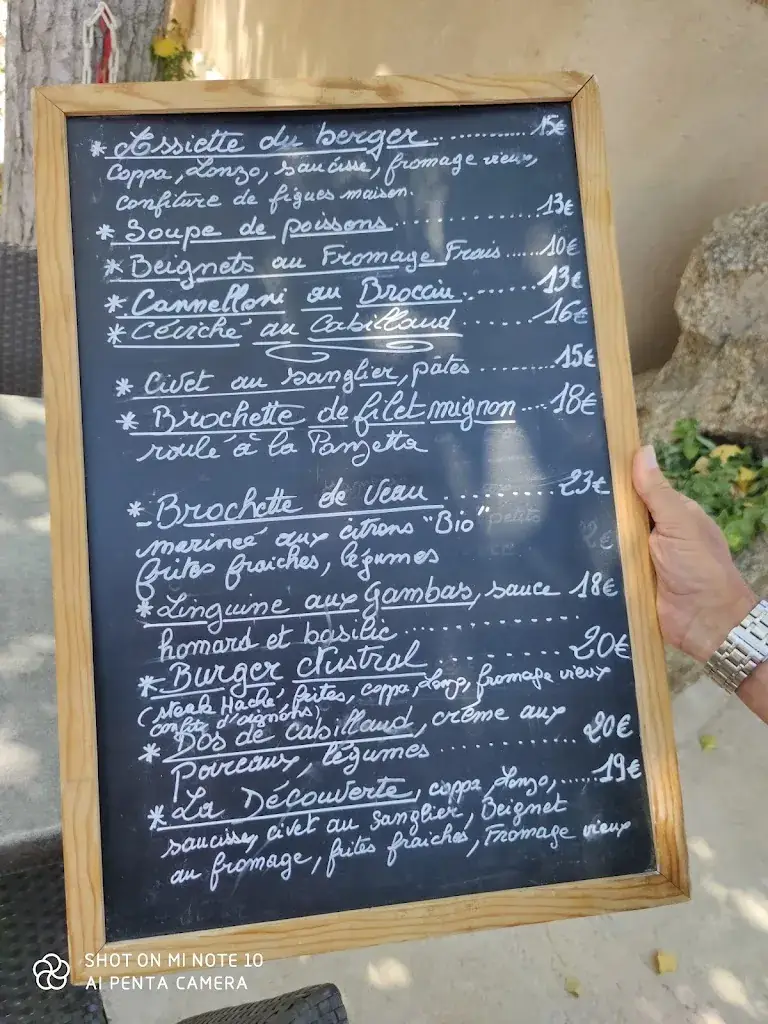 * Assiette du berger ........... 15€
coppa, Lonzo, saucisse, fromage vieux,
confiture de figues maison.
* Soupe de poissons ............ 13€
* Beignets au Fromage Frais ...... 10€
* Cannelloni au Brocciu ....... 13€
* Céviché au Cabillaud ....... 16€
* Civet au sanglier, pâtes ......... 15€
* Brochette de filet mignon .... 18€
roulé à la Panzetta
* Brochette de veau .......... 23€
marineé aux citrons "Bio"
frites fraiches, légumes
* Linguine aux gambas, sauce 18€
homard et basilic ............
* Burger Nustral ......... 20€
(steak Haché, frites, coppa, Lonzo, fromage vieux
confits d'oignons)
* Dos de cabillaud, crème aux
Poireaux, légumes ............ 20€
* La Découverte, coppa, Lonzo, ..... 19€
saucisse, civet au sanglier, Beignet
au fromage, frites fraiches, Fromage vieux
SHOT ON MI NOTE 10
AI PENTA CAMERA